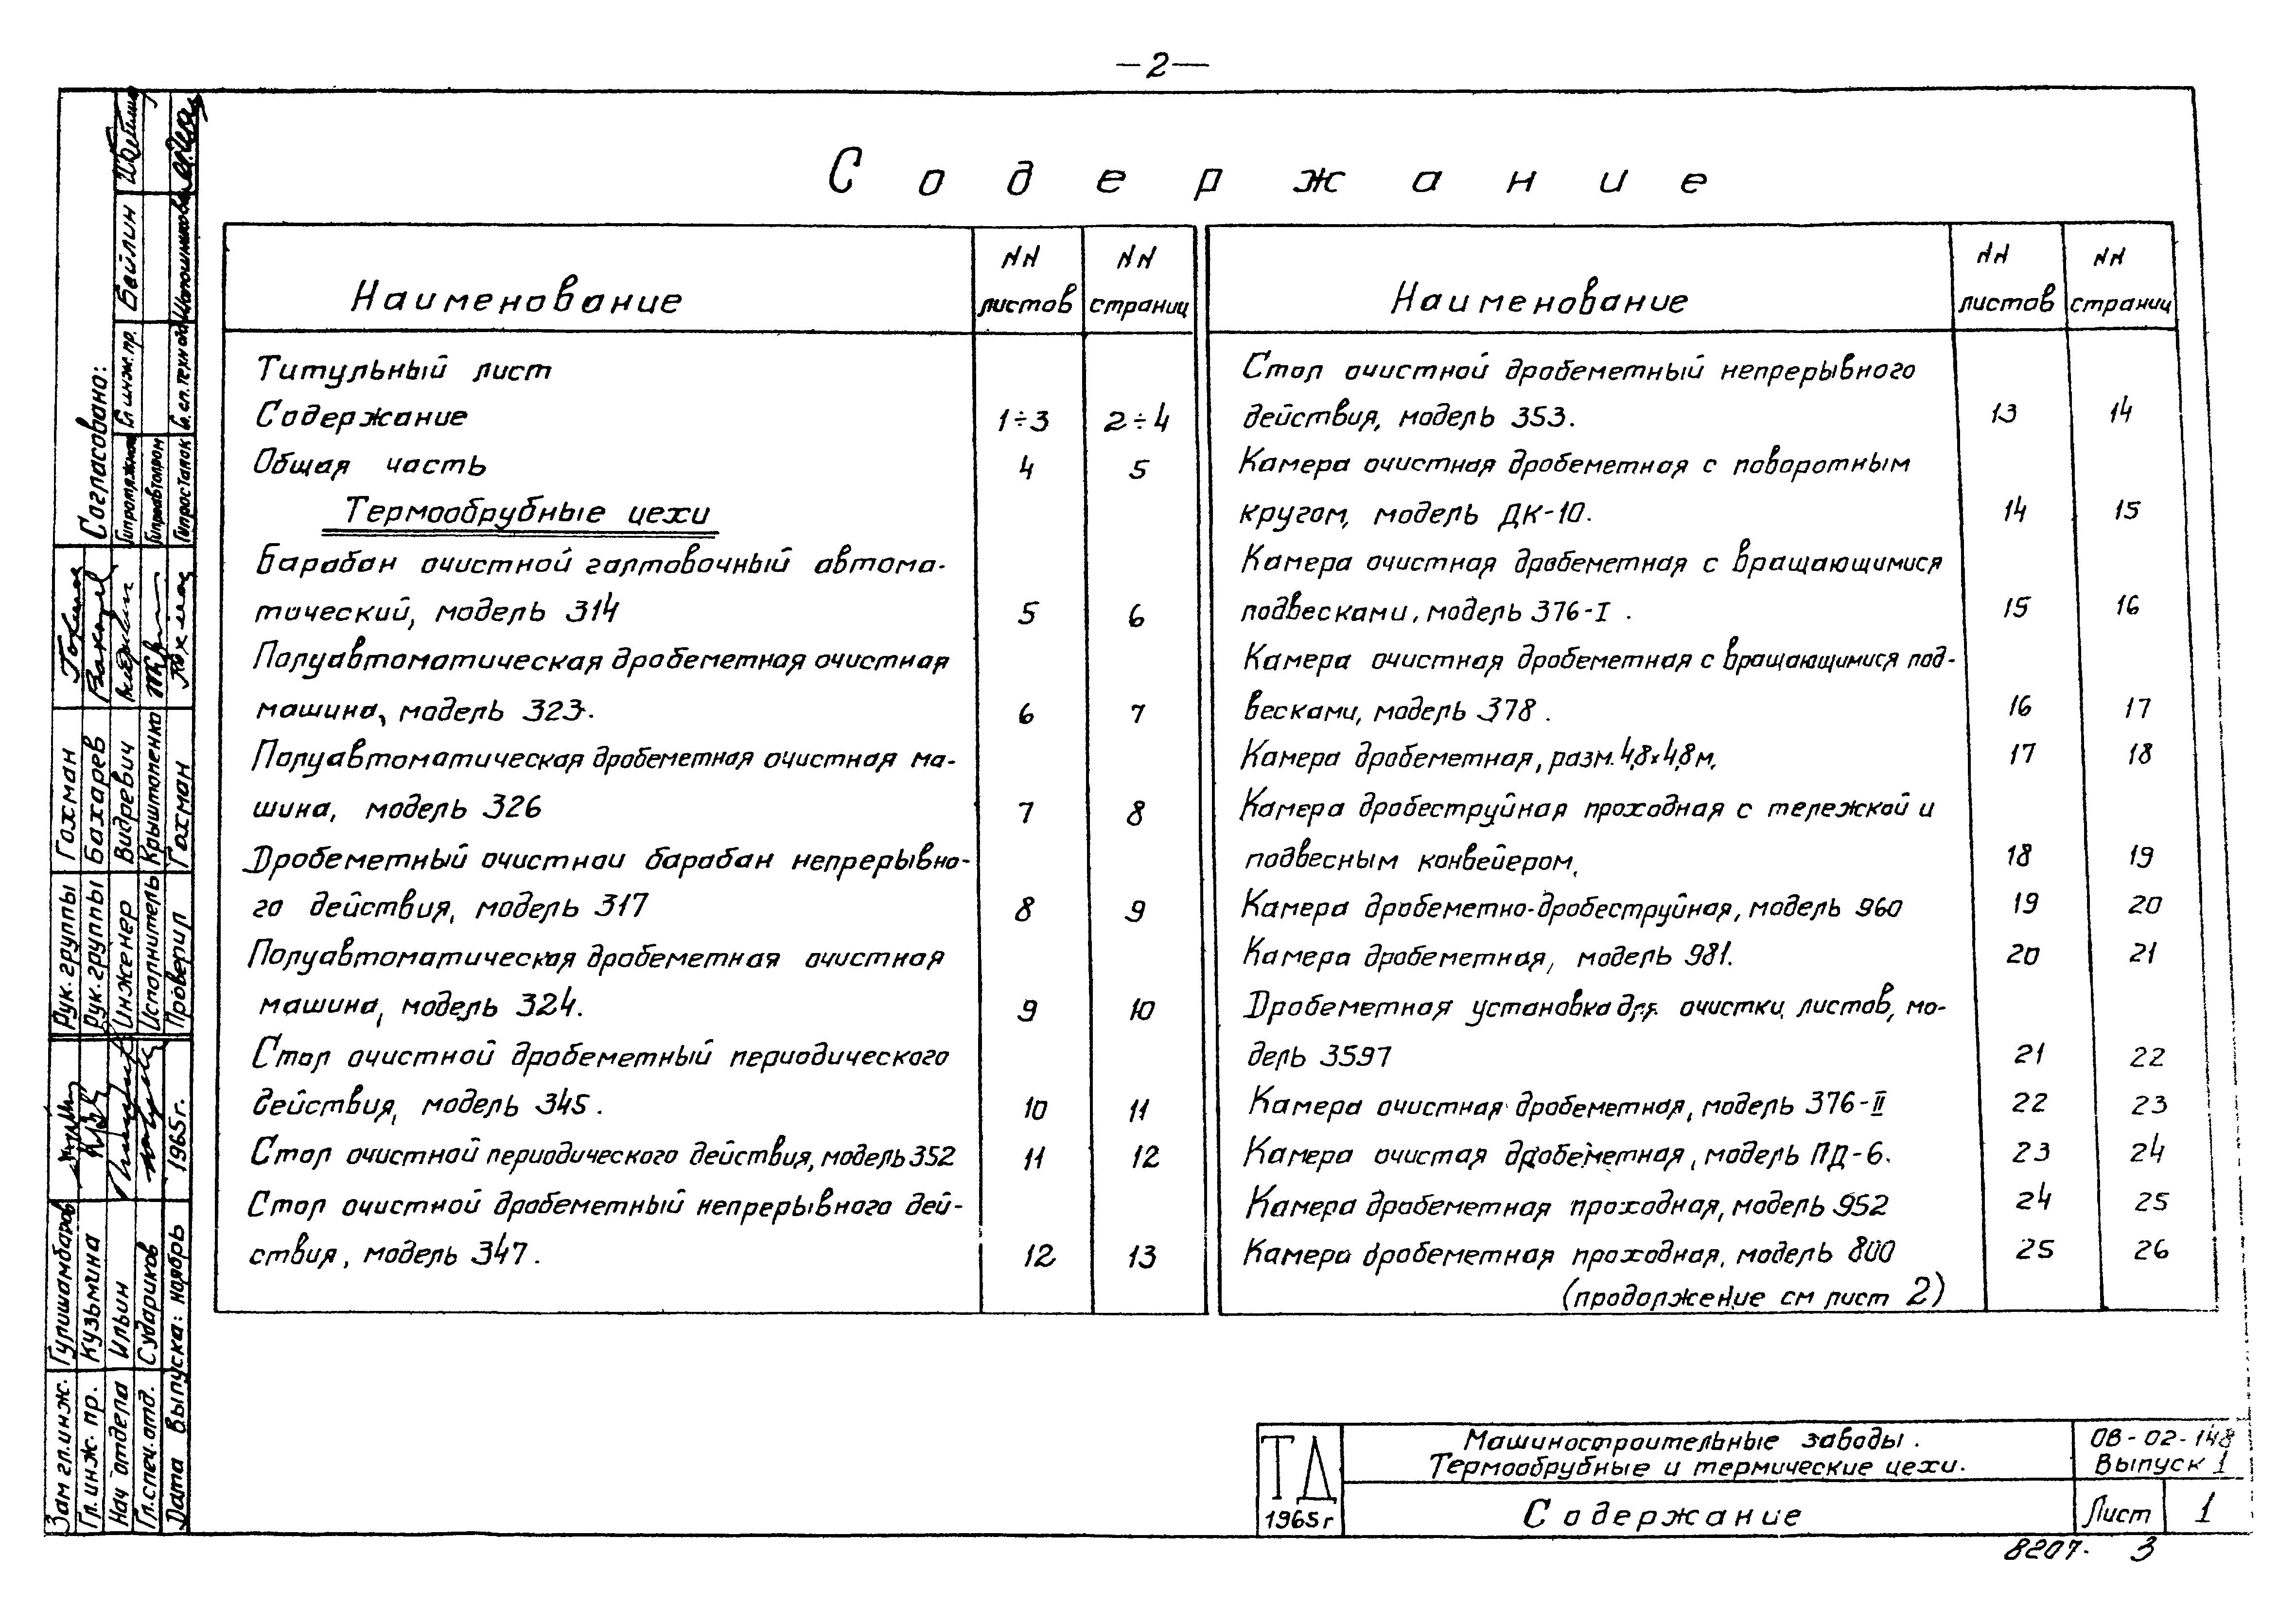 —2—
Содержание
Наименование
NN листов
NN страниц
Титульный лист
Содержание 1÷3 2÷4
Общая часть 4 5
Термообрубные цехи
Барабан очистной галтовочный автома-
тический, модель 314 5 6
Полуавтоматическая дробеметная очистная
машина, модель 323. 6 7
Полуавтоматическая дробеметная очистная ма-
шина, модель 326 7 8
Дробеметный очистнои барабан непрерывно-
го действия, модель 317 8 9
Полуавтоматическая дробеметная очистная
машина, модель 324. 9 10
Стол очистной дробеметный периодического
действия, модель 345. 10 11
Стол очистной периодического действия, модель 352 11 12
Стол очистной дробеметный непрерывного дей-
ствия, модель 347. 12 13
Наименование
NN листов
NN страниц
Стол очистной дробеметный непрерывного
действия, модель 353. 13 14
Камера очистная дробеметная с поворотным
кругом, модель ДК-10. 14 15
Камера очистная дробеметная с вращающимися
подвесками, модель 376-I. 15 16
Камера очистная дробеметная с вращающимися под-
весками, модель 378. 16 17
Камера дробеметная, разм. 4,8×4,8м. 17 18
Камера дробеструйная проходная с тележкой и
подвесным конвейером. 18 19
Камера дробеметно-дробеструйная, модель 960 19 20
Камера дробеметная, модель 981. 20 21
Дробеметная установка для очистки листов, мо-
дель 3597 21 22
Камера очистная дробеметная, модель 376-II 22 23
Камера очистая дробеметная, модель ПД-6. 23 24
Камера дробеметная проходная, модель 952 24 25
Камера дробеметная проходная, модель 800 25 26
(продолжение см лист 2)
Согласовано:
Гипротяжмаш Гл инж. пр. Бейлин
Гипроавтопром
Гипростанок Гл. сп. технол. Шапошников
Рук. группы Гохман
Рук. группы Бахарев
Инженер Видревич
Исполнитель Крыштопенко
Проверил Гохман
Зам гл. инж. Гулишамбаров
Гл. инж. пр. Кузьмина
Нач отдела Ильин
Гл. спец. отд. Судариков
Дата выпуска: ноябрь 1965г.
ТД
1965г
Машиностроительные заводы.
Термообрубные и термические цехи.
Содержание
ОВ-02-148
Выпуск 1
Лист 1
8207- 3